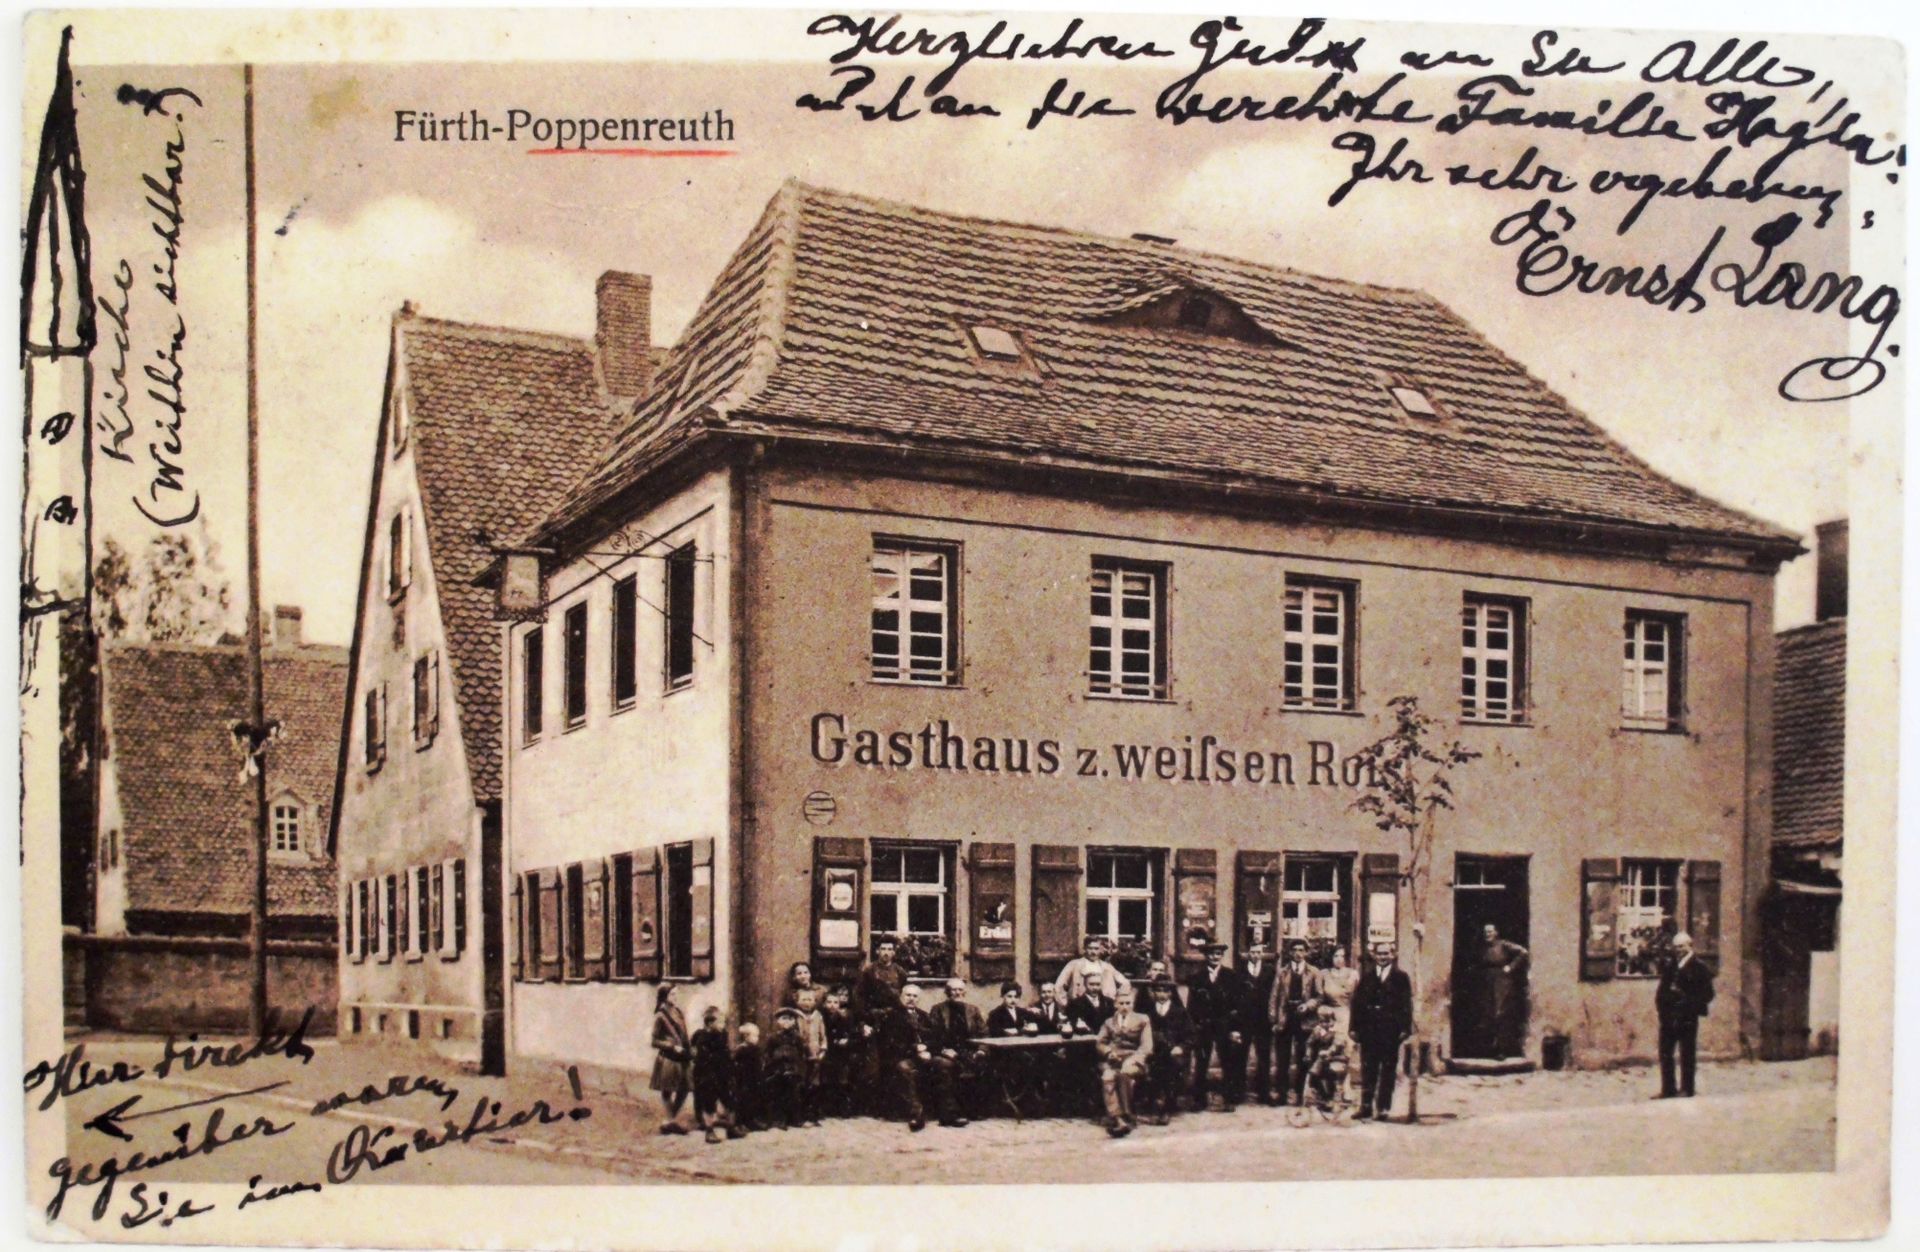 Herzlichen Gruß an Sie Alle,
und an die verehrte Familie
Ihr sehr ergebener,
Ernst Lang.
Fürth-Poppenreuth
Kirche
(Weithin sichtbar.)
Gasthaus z. weiſsen Roſs
Erdal
MAGGI
Hier direkt
gegenüber waren
Sie im Quartier!